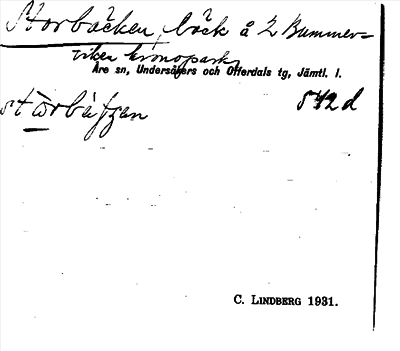 Storbäcken, bäck å 2 Bummer=
viken kronopark,
Åre sn, Undersåkers och Offerdals tg, Jämtl. l.
542d
C. LINDBERG 1931.